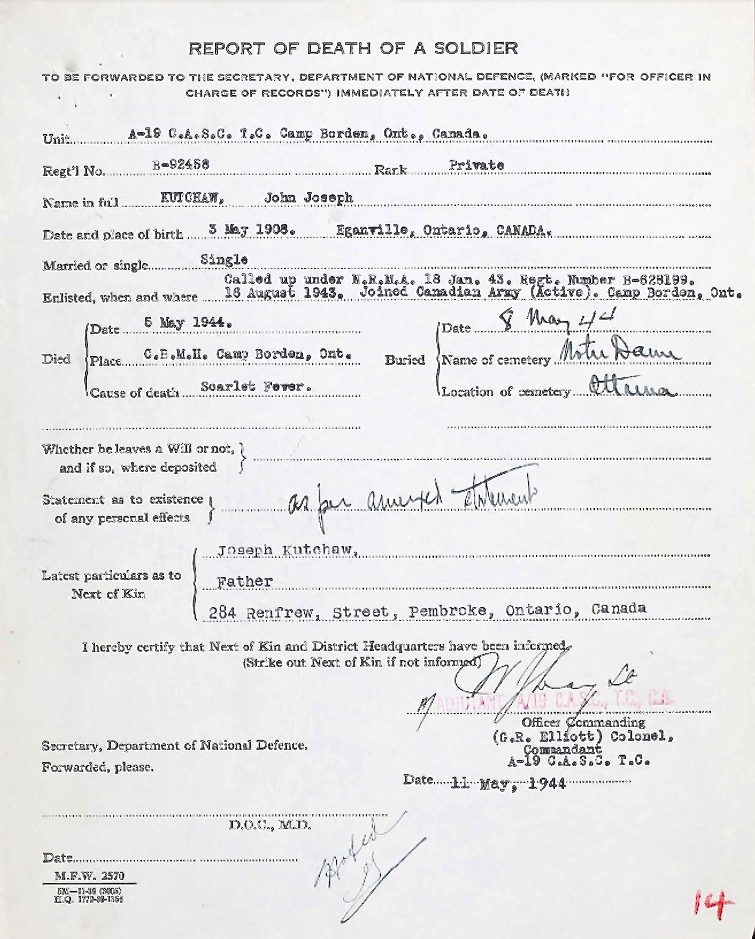 REPORT OF DEATH OF A SOLDIER
TO BE FORWARDED TO THE SECRETARY, DEPARTMENT OF NATIONAL DEFENCE, (MARKED "FOR OFFICER IN
CHARGE OF RECORDS") IMMEDIATELY AFTER DATE OF DEATH
Unit A-19 C.A.S.C. T.C. Camp Borden, Ont., Canada.
Regt'l No. B-92458 Rank Private
Name in full KUTCHAW, John Joseph
Date and place of birth 3 May 1908. Eganville, Ontario, CANADA.
Married or single Single
Called up under N.R.M.A. 18 Jan. 43. Regt. Number B-628199.
Enlisted, when and where 16 August 1943. Joined Canadian Army (Active). Camp Borden, Ont.
Died Date 5 May 1944. Buried Date 8 May 44
Place C.B.M.H. Camp Borden, Ont. Name of cemetery Notre Dame
Cause of death Scarlet Fever. Location of cemetery Ottawa
Whether he leaves a Will or not,
and if so, where deposited
Statement as to existence
of any personal effects as per annexed statement
Latest particulars as to
Next of Kin
Joseph Kutchaw,
Father
284 Renfrew, Street, Pembroke, Ontario, Canada
I hereby certify that Next of Kin and District Headquarters have been informed
(Strike out Next of Kin if not informed)
ADJUTANT A/19 C.A.S.C., T.C., C.A.
Officer Commanding
(G.R. Elliott) Colonel,
Commandant
A-19 C.A.S.C. T.C.
Secretary, Department of National Defence.
Forwarded, please.
Date 11 May, 1944
D.O.C., M.D.
Noted
Date
M.F.W. 2570
H.Q. 1772-39-1356
14